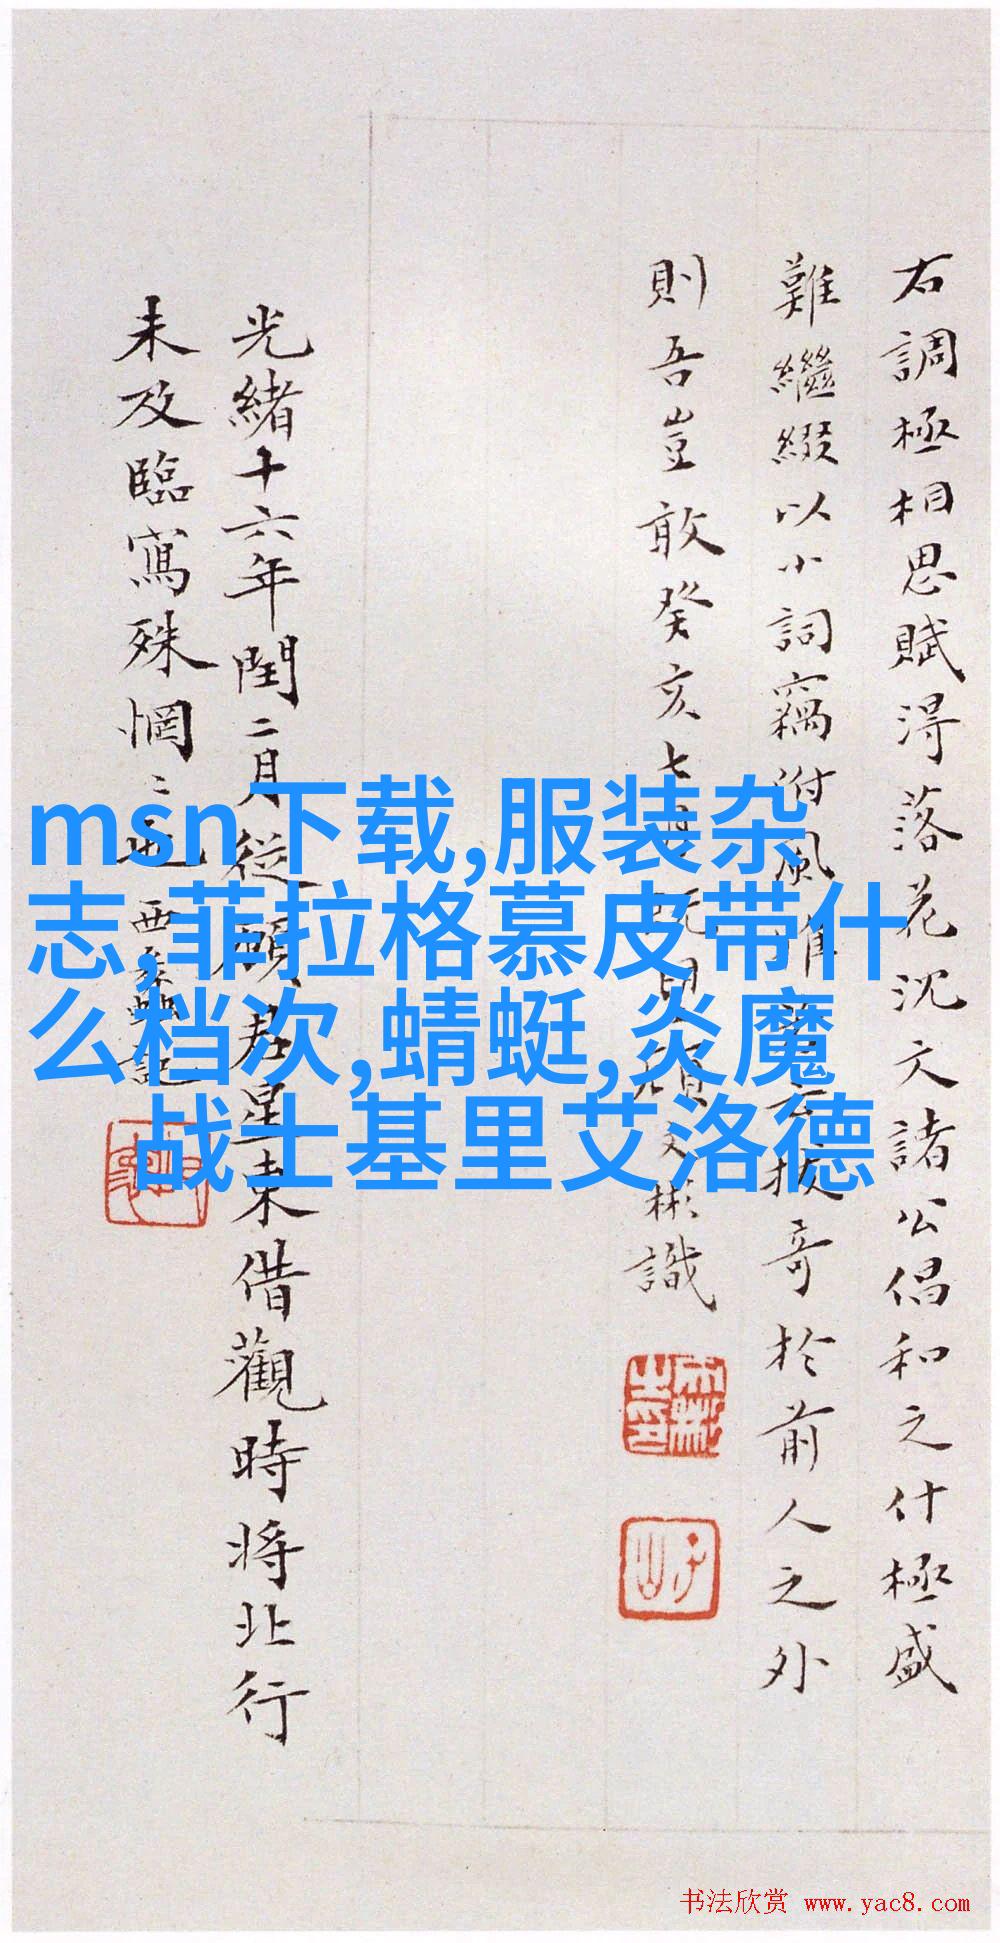 右調極相思賦得落花沈文諸公倡和之什極盛
難繼綴以小詞竊附風雅
拔奇於前人之外
則吾豈敢癸亥七月
文彬識
光緒十六年閏二月從顧君星東借觀時將北行
未及臨寫殊惘〻也
msn下载,服装杂
志,菲拉格慕皮带什
么档次,蜻蜓,炎魔
战士基里艾洛德
书法欣赏 www.yac8.com